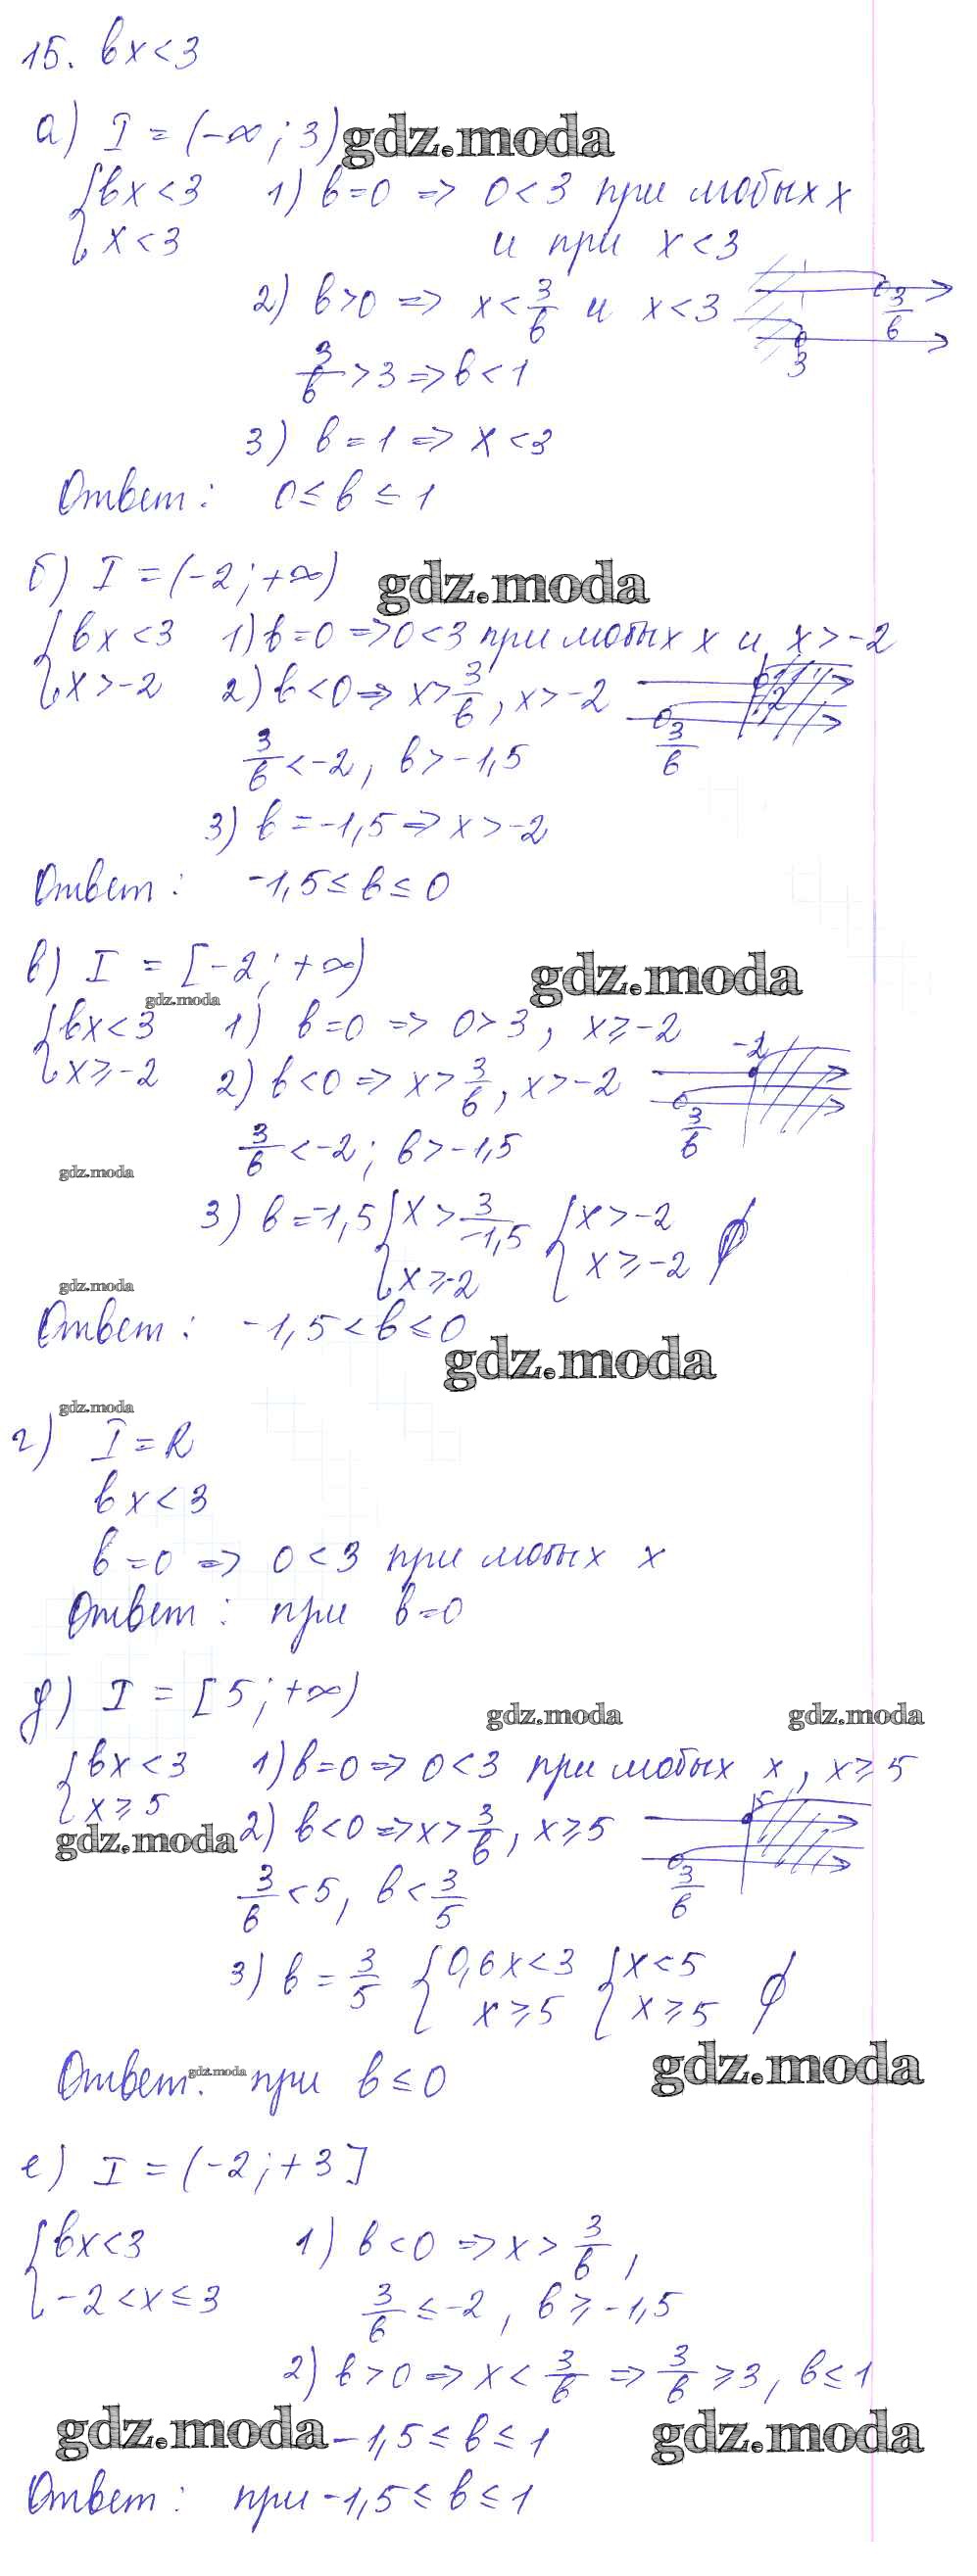 15. bx<3
а) I = (-∞; 3) gdz.moda
{bx<3 1) b=0 => 0<3 при любых x
x<3 и при x<3
2) b>0 => x<3/b и x<3 3/b
3
3/b>3 => b<1
3) b=1 => x<3
Ответ: 0≤b≤1
б) I = (-2; +∞) gdz.moda
{bx<3 1) b=0 => 0<3 при любых x и x>-2
x>-2 2) b<0 => x>3/b, x>-2 -2
3/b
3/b<-2, b>-1,5
3) b=-1,5 => x>-2
Ответ: -1,5≤b≤0
в) I = [-2; +∞) gdz.moda
gdz.moda
{bx<3 1) b=0 => 0>3, x≥-2
x≥-2 2) b<0 => x>3/b, x>-2 -2
3/b
3/b<-2; b>-1,5
gdz.moda
3) b=-1,5 {x>3/-1,5 {x>-2
x≥-2 x≥-2 ∅
gdz.moda
Ответ: -1,5<b≤0
gdz.moda
gdz.moda
г) I = R
bx<3
b=0 => 0<3 при любых x
Ответ: при b=0
д) I = [5; +∞)
gdz.moda gdz.moda
{bx<3 1) b=0 => 0<3 при любых x, x≥5
x≥5 5
gdz.moda 2) b<0 => x>3/b, x≥5
3/b
3/b<5, b<3/5
3) b=3/5 {0,6x<3 {x<5
x≥5 x≥5 ∅
gdz.moda
Ответ: gdz.moda при b≤0
е) I = (-2; +3]
{bx<3 1) b<0 => x>3/b,
-2<x≤3 3/b≤-2, b≥-1,5
2) b>0 => x<3/b => 3/b≥3, b≤1
gdz.moda -1,5≤b≤1 gdz.moda
Ответ: при -1,5≤b≤1